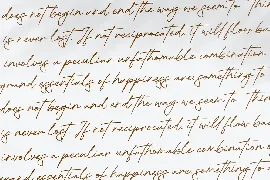 does not begin and end the way we seem to thin
is never lost. If not reciprocated, it will flow bac
involves a peculiar unfathomable combination
grand essentials of happiness are something to
does not begin and end the way we seem to thin
is never lost. If not reciprocated, it will flow bac
involves a peculiar unfathomable combination o
grand essentials of happiness are something to d